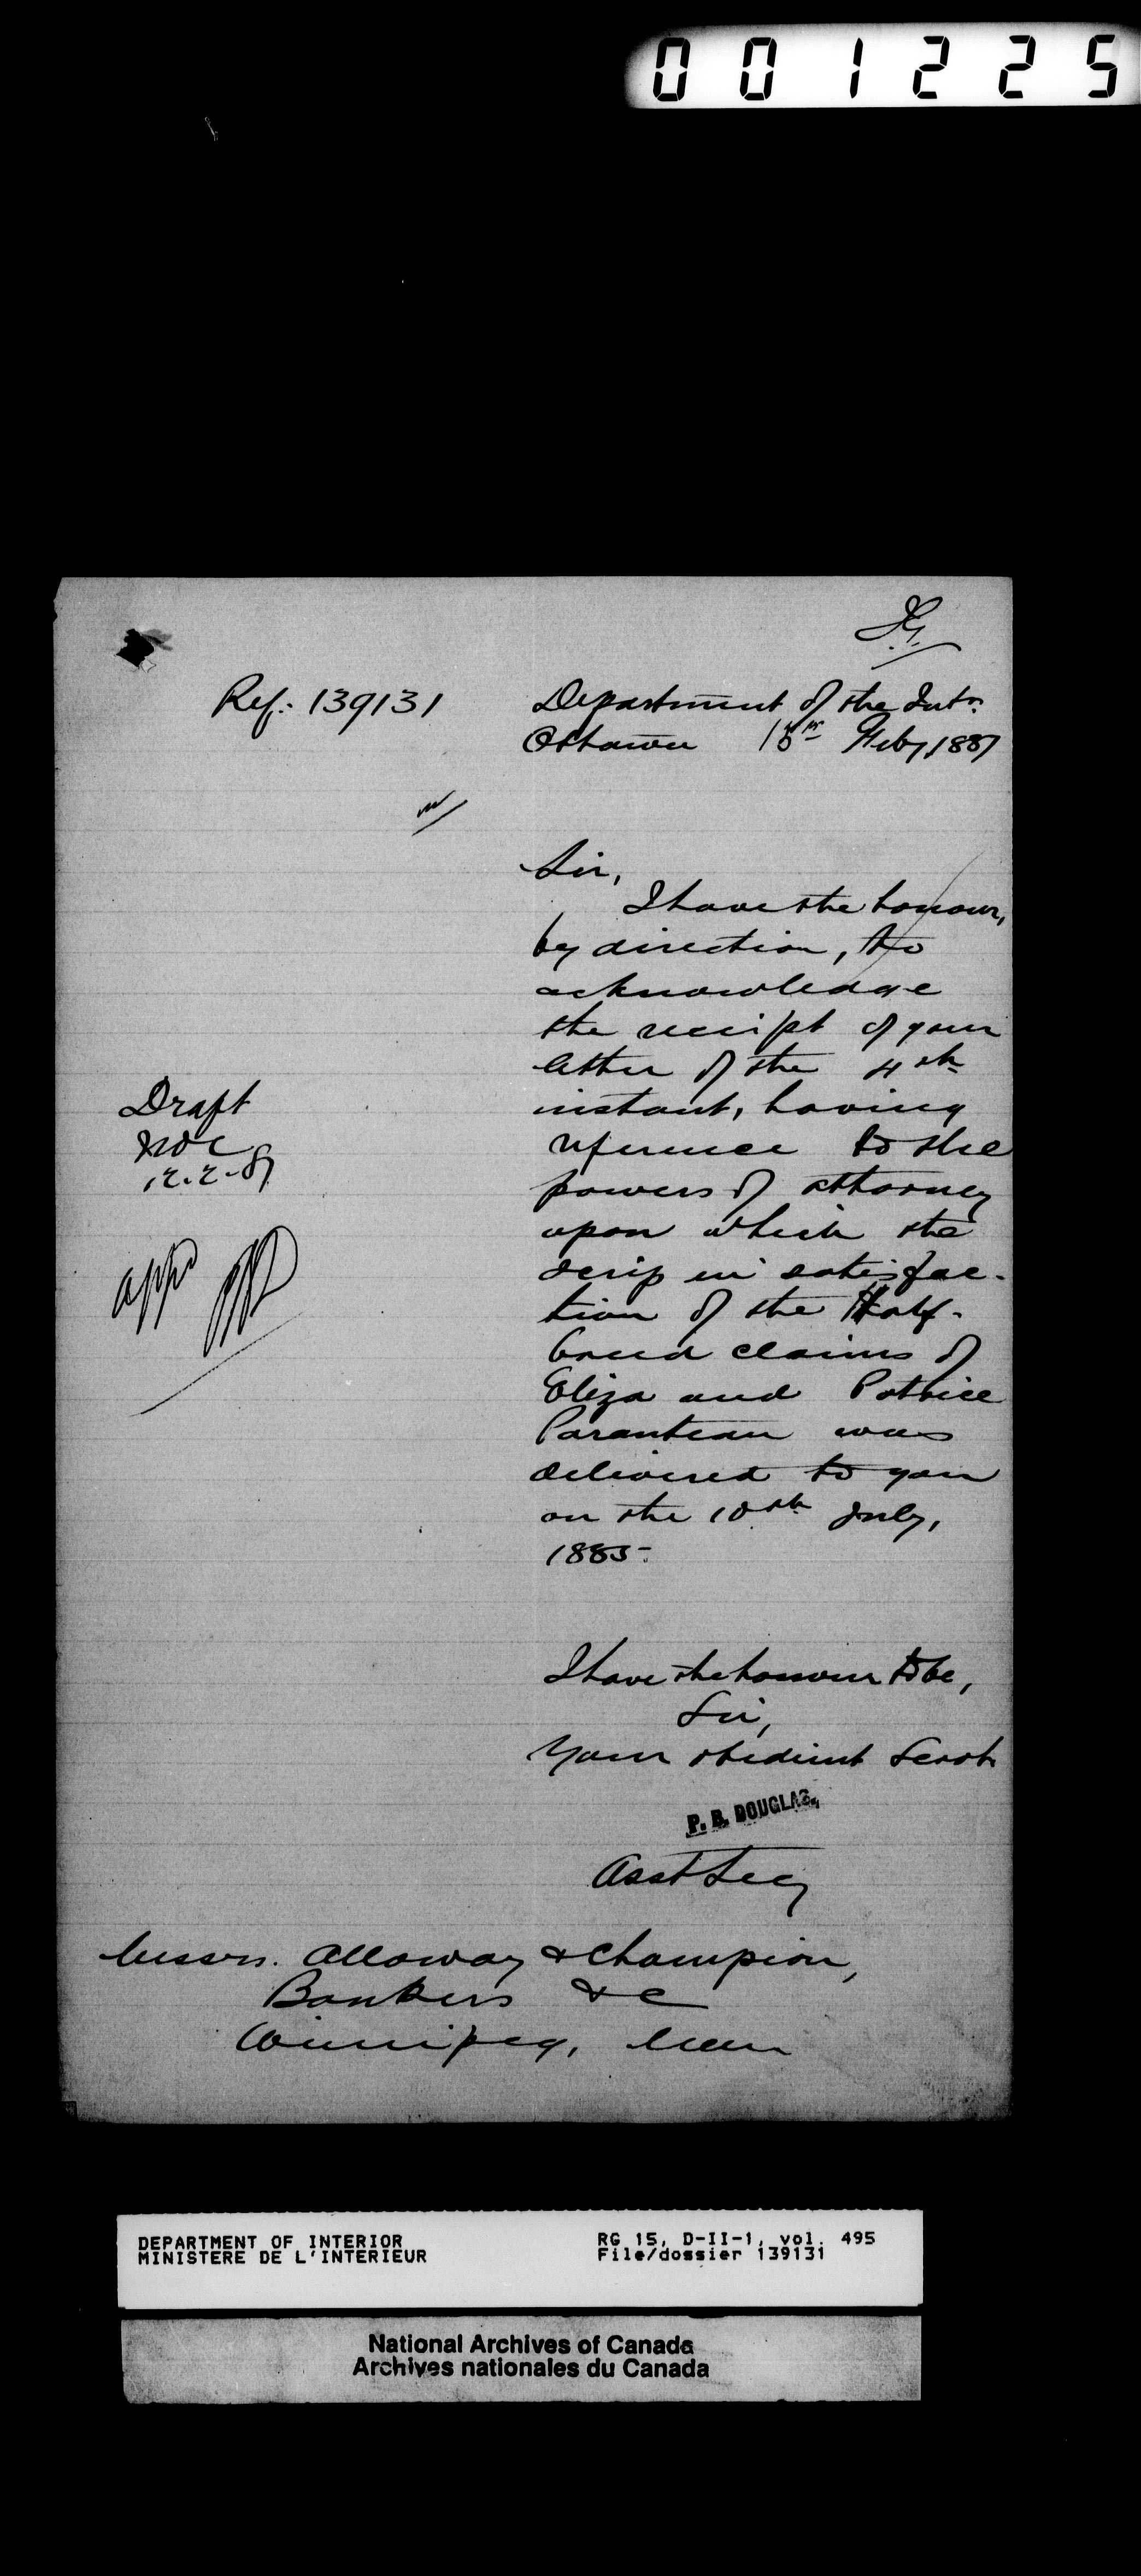 001225
Ref: 139131
Department of the Intr.
Ottawa 15th Feby 1887
Sir,
I have the honour,
by direction, to
acknowledge
the receipt of your
letter of the 4th
instant, having
reference to the
powers of attorney
upon which the
scrip in satisfac-
tion of the Half-
breed claims of
Eliza and Patrice
Paranteau was
delivered to you
on the 10th July,
1885.
Draft
12.2.87
I have the honour to be,
Sir,
Your obedient Servt
P. B. DOUGLAS,
Asst Secy
Messrs. Alloway & Champion,
Bankers &c
Winnipeg, Man
DEPARTMENT OF INTERIOR
MINISTERE DE L'INTERIEUR
RG 15, D-II-1, vol. 495
File/dossier 139131
National Archives of Canada
Archives nationales du Canada